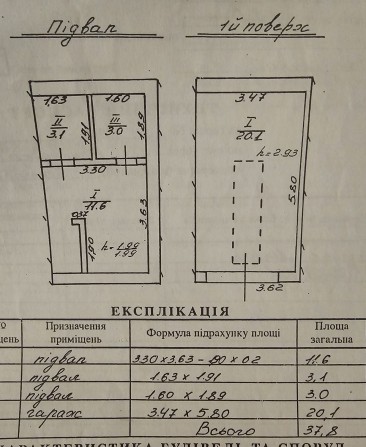 Підвал
1й поверх
1.63
1.60
3.47
II
3.1
1.91
III
3.0
1.89
I
20.1
h=2.93
3.30
I
11.6
3.63
5.80
037
1.90
h=1.99
1.99
3.62
ЕКСПЛІКАЦІЯ
№
щень
Призначення
приміщень
Формула підрахунку площі
Площа
загальна
підвал 3.30 x 3.63 - 190 x 02 11.6
підвал 1.63 x 1.91 3,1
підвал 1.60 x 1.89 3.0
гараж 3.47 x 5.80 20,1
Всього 37,8
ХАРАКТЕРИСТИКА БУДІВЕЛЬ ТА СПОРУД